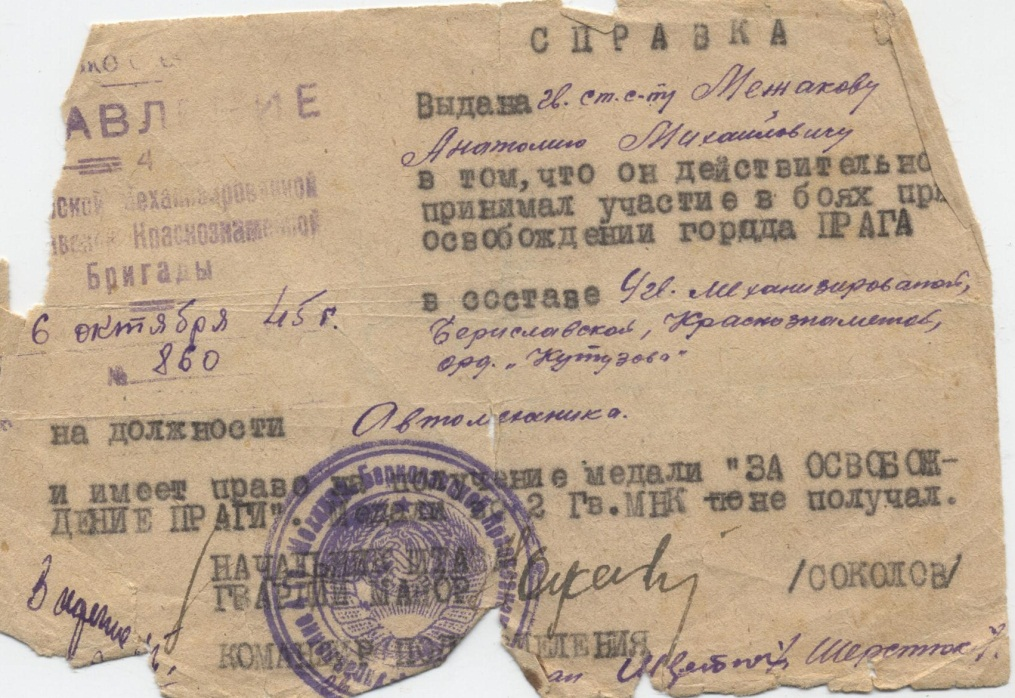 СПРАВКА
АВЛ ИЕ
4
ской Механизированной
Краснознаменной
Бригады
6 октября 45 г.
№ 860
Выдана гв. ст. с-ту Межакову
Анатолию Михайловичу
в том, что он действительно
принимал участие в боях при
освобождении горцда ПРАГА
в составе 4 гв. механизированой,
Бериславской, Краснознаменой,
орд. "Кутузова"
на должности Автомеханика.
и имеет право на получение медали "ЗА ОСВОБОЖ-
ДЕНИЕ ПРАГИ" Медали 2 Гв.МНК не получал.
НАЧАЛЬНИК ШТА
ГВАРДИИ МАЙОР /СОКОЛОВ/
КОМАНДИР ПО ЕЛЕНИЯ